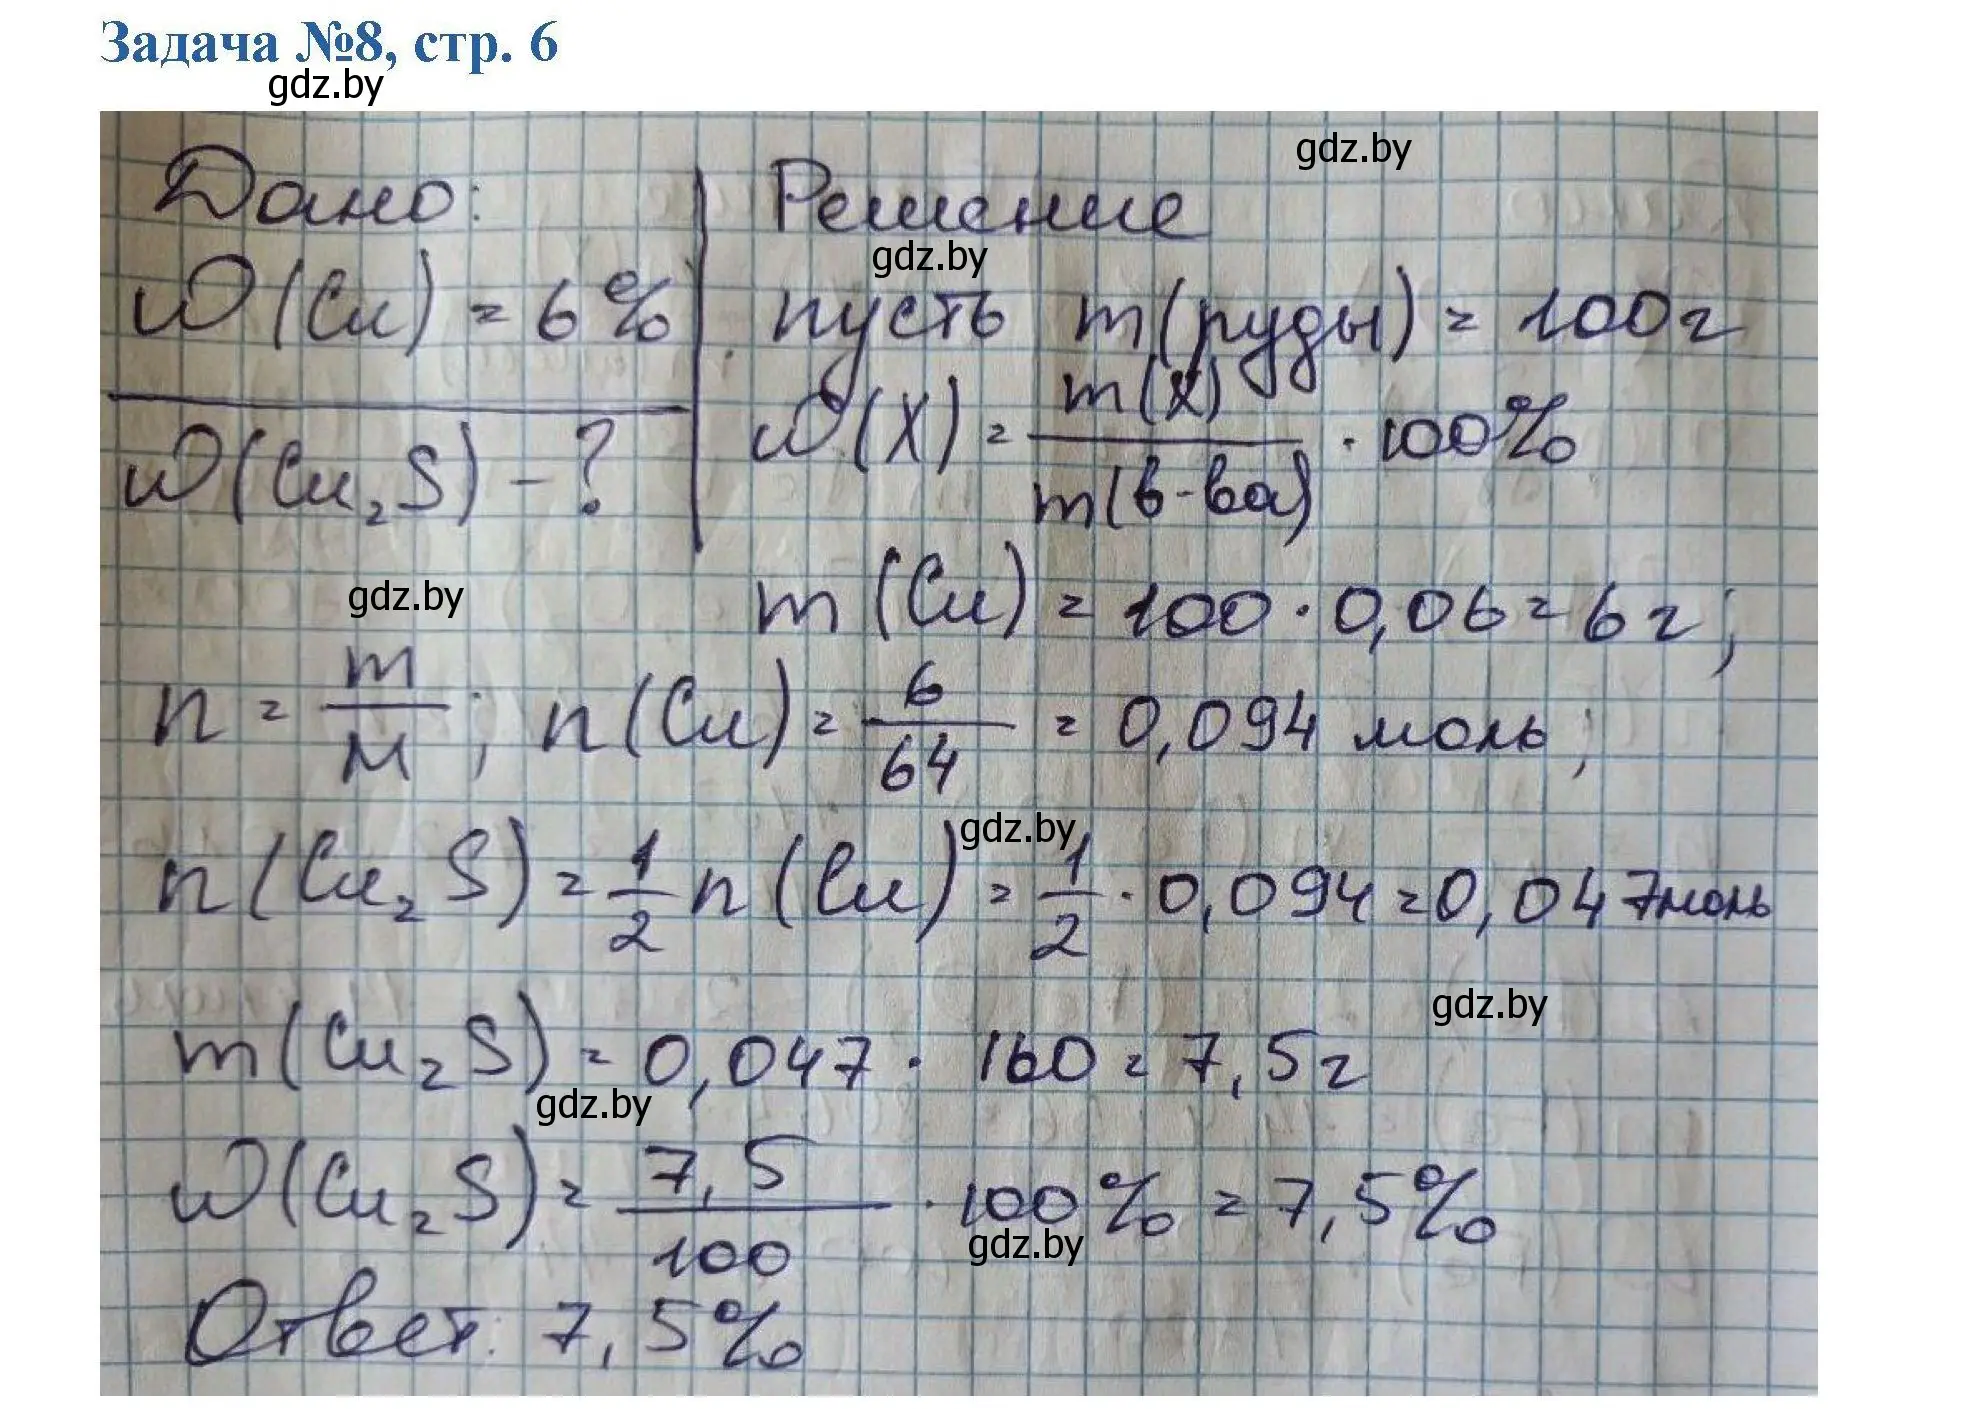 Задача №8, стр. 6
gdz.by
gdz.by
Дано: Решение
gdz.by
W(Cu) = 6% пусть m(руды) = 100г
W(X) = m(X) / m(в-ва) · 100%
W(Cu₂S) - ?
gdz.by
m(Cu) = 100 · 0,06 = 6г;
n = m / M; n(Cu) = 6 / 64 = 0,094 моль;
gdz.by
n(Cu₂S) = 1/2 n(Cu) = 1/2 · 0,094 = 0,047моль
gdz.by
m(Cu₂S) = 0,047 · 160 = 7,5г
gdz.by
W(Cu₂S) = 7,5 / 100 · 100% = 7,5%
gdz.by
Ответ: 7,5%